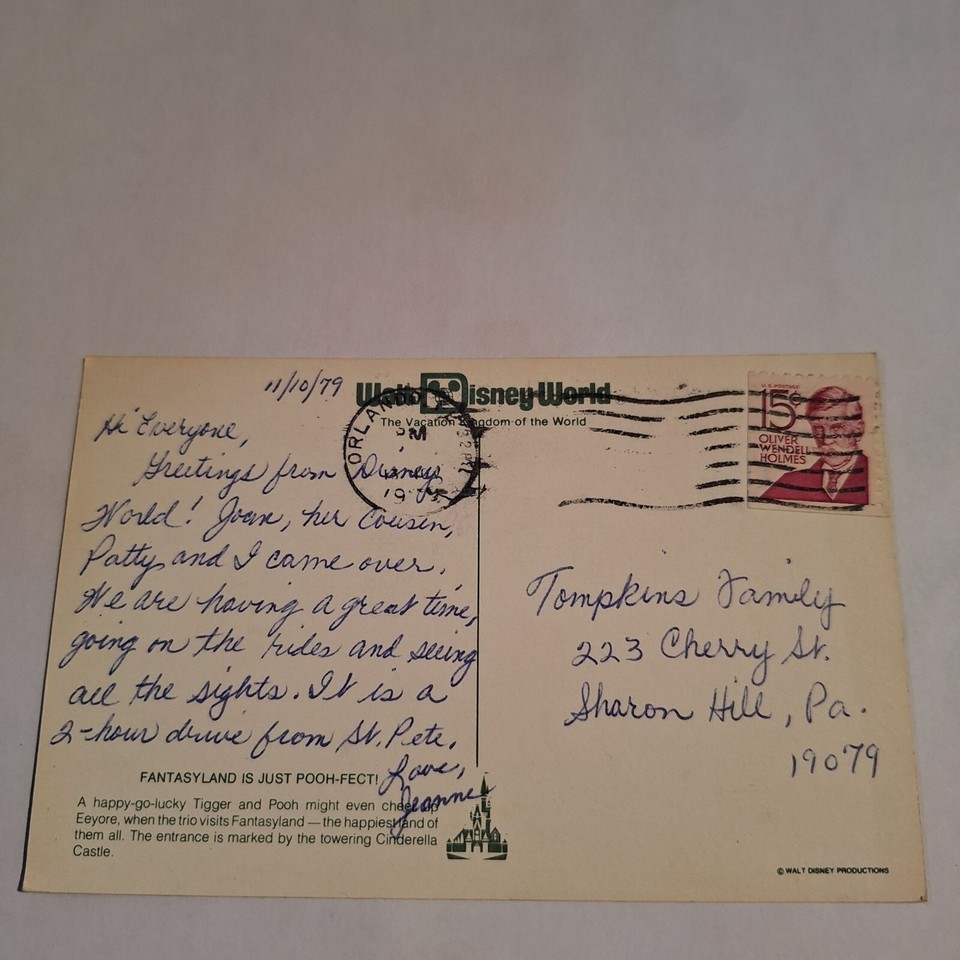 11/10/79
Walt Disney World
The Vacation Kingdom of the World
Hi Everyone,
Greetings from Disney
World! Joan, her Cousin,
Patty and I came over.
We are having a great time,
going on the rides and seeing
all the sights. It is a
2-hour drive from St. Pete.
Love,
Jeanne
FANTASYLAND IS JUST POOH-FECT!
A happy-go-lucky Tigger and Pooh might even cheer up
Eeyore, when the trio visits Fantasyland — the happiest land of
them all. The entrance is marked by the towering Cinderella
Castle.
ORLANDO
PM
1979
U.S. POSTAGE
15¢
OLIVER
WENDELL
HOLMES
Tompkins Family
223 Cherry St.
Sharon Hill, Pa.
19079
© WALT DISNEY PRODUCTIONS